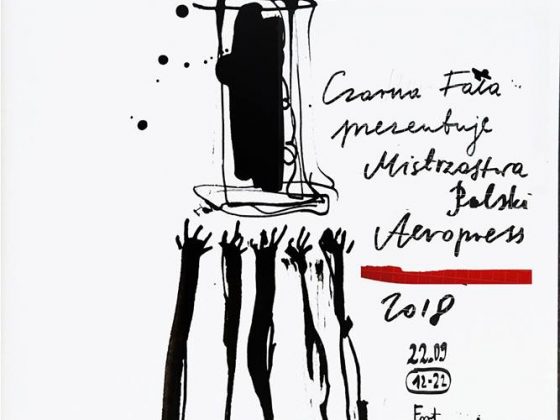 Czarna Fala
prezentuje
Mistrzostwa
Polski
Aeropress
2018
22.09
12-22